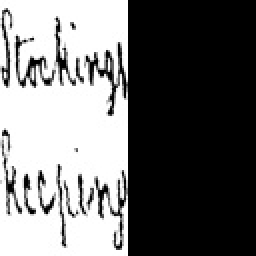 Stockings
keeping